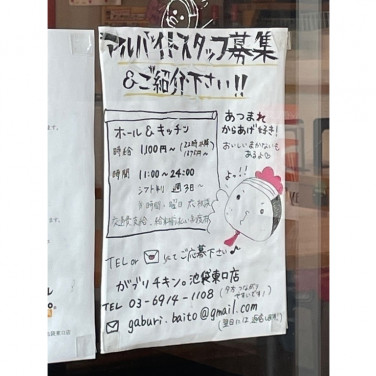 アルバイトスタッフ募集
&ご紹介下さい!!
ホール&キッチン
時給 1,100円〜(22時以降 1375円〜
時間 11:00〜24:00
シフト制 週3日〜
※時間・曜日 応相談
交通費支給、給料
あつまれ
からあげ好き!
おいしいまかないも
あるよ
よっ!!
TEL or にてご応募下さい♪
がブリチキン。池袋東口店
TEL 03-6914-1108 (夕方つながり
やすいです!)
gaburi.baito@gmail.com
(翌日には